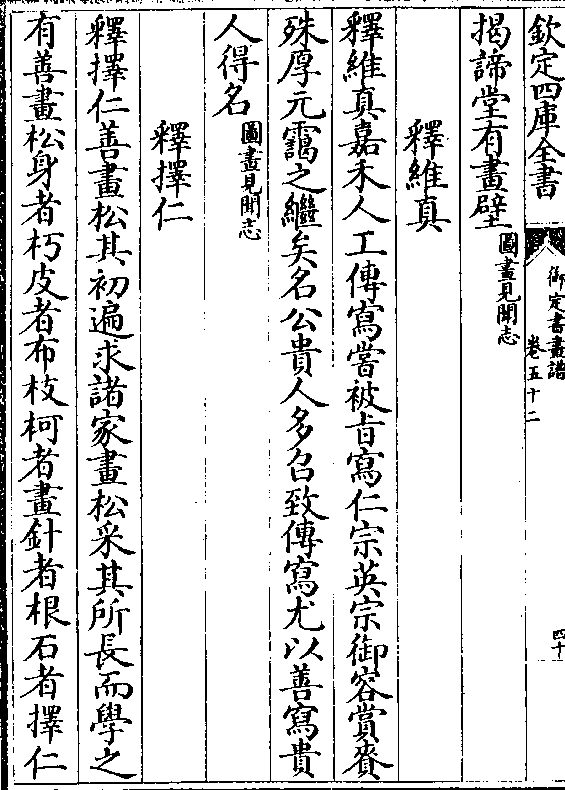 欽定四庫全書
御定書畫譜
卷五十二
四十
揭諦堂有畫壁圖畫見聞志
釋維真
釋維真嘉禾人工傳寫嘗被㫖寫仁宗英宗御容賞賚
殊厚元靄之繼矣名公貴人多召致傳寫尤以善寫貴
人得名圖畫見聞志
釋擇仁
釋擇仁善畫松其初遍求諸家畫松采其所長而學之
有善畫松身者朽皮者布枝柯者畫針者根石者擇仁